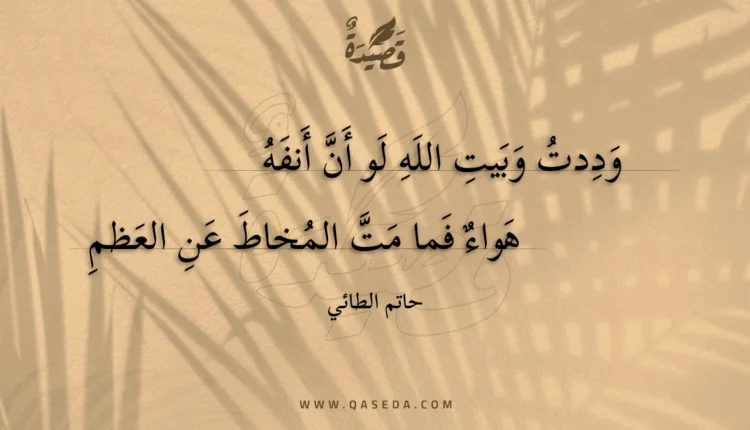 قَصِيْدَةٌ
وَدِدتُ وَبَيتِ اللَهِ لَو أَنَّ أَنفَهُ
هَواءٌ فَما مَتَّ المُخاطَ عَنِ العَظمِ
حاتم الطائي
WWW.QASEDA.COM